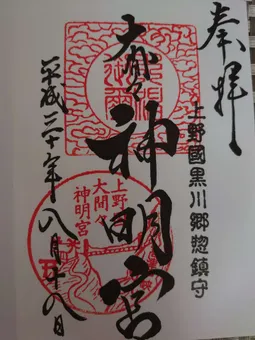 奉拝
上野國黒川郷惣鎮守
大間々
神明宮
上野
大間々
神明宮
平成三十年八月十八日